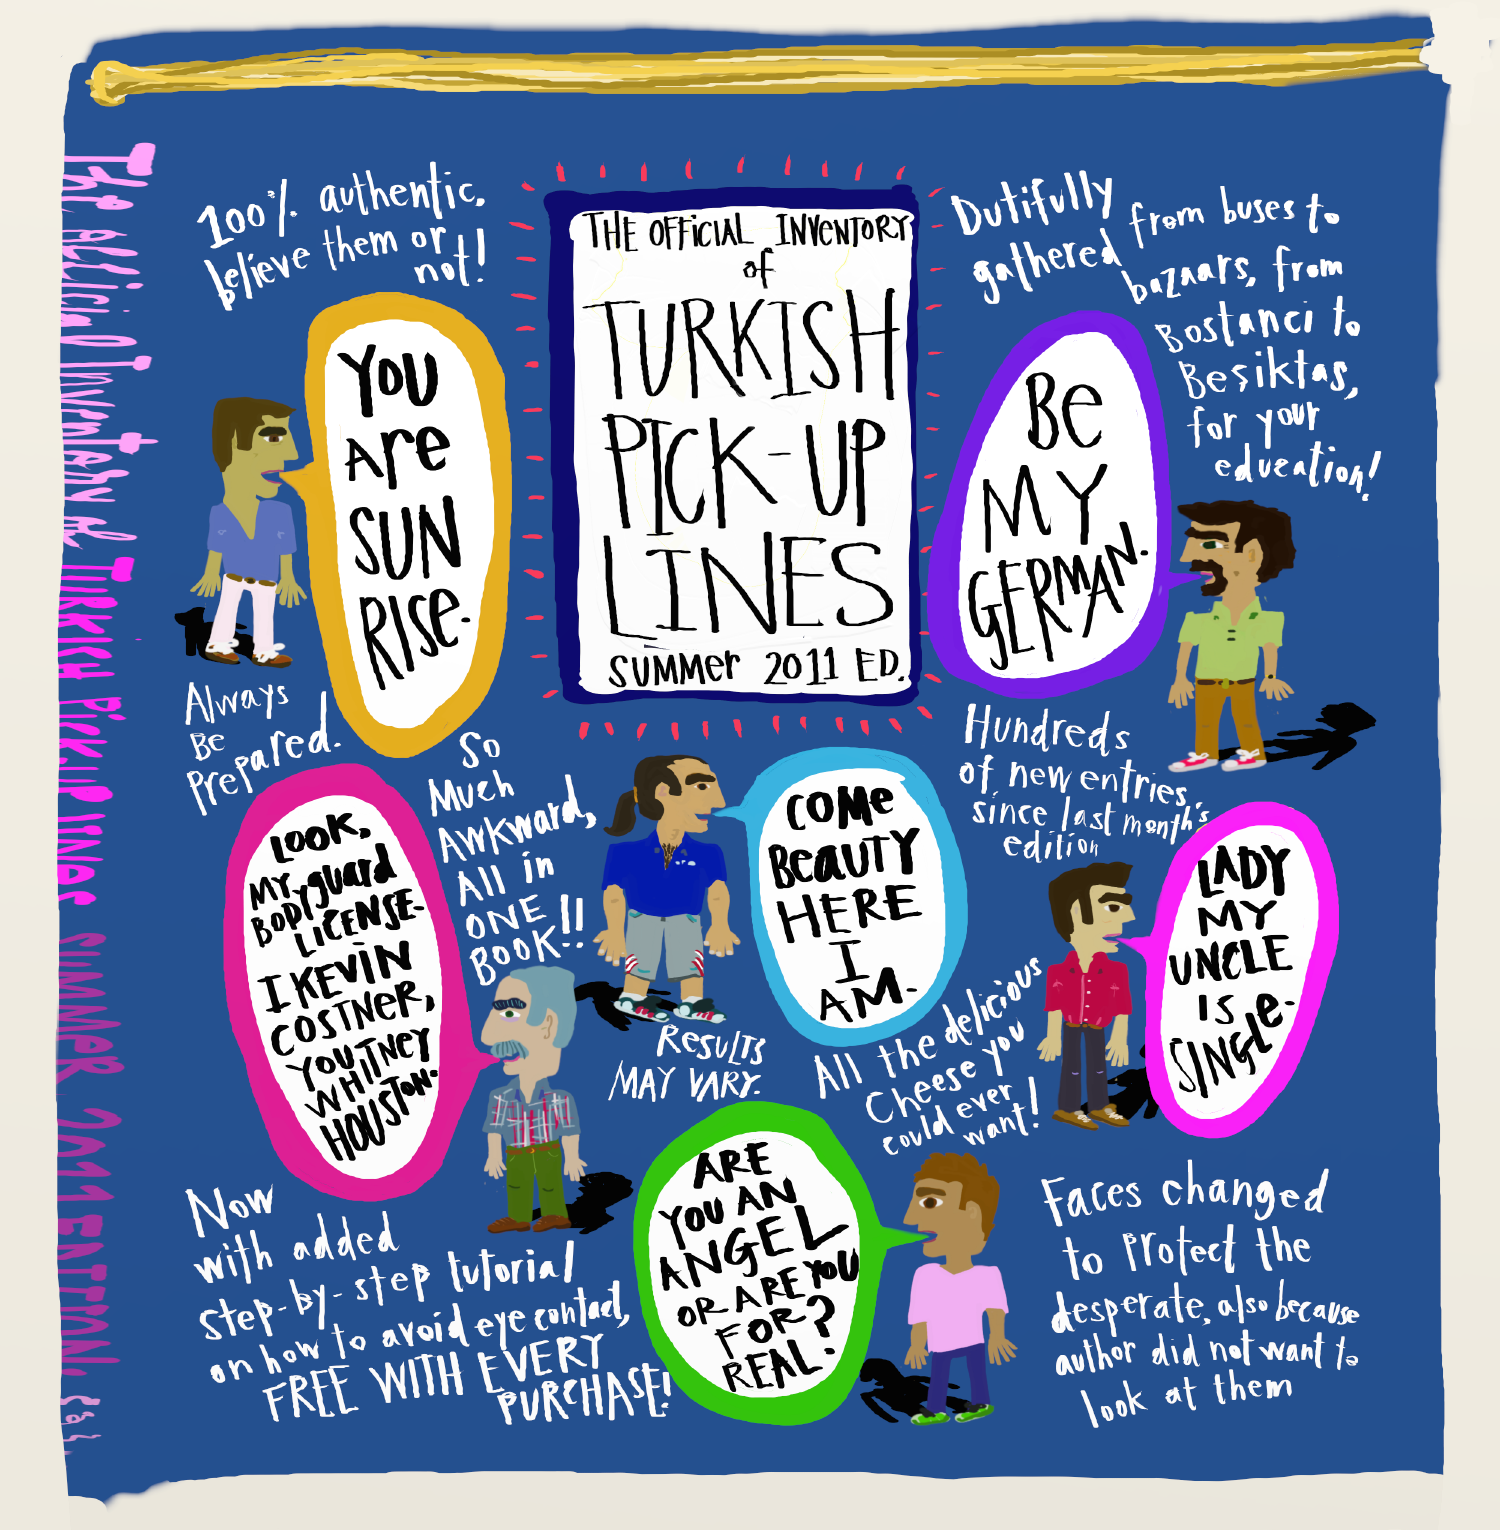 100% authentic,
believe them or
not!
THE OFFICIAL INVENTORY
of
TURKISH
PICK-UP
LINES
SUMMER 2011 ED.
Dutifully
gathered
from buses to
bazaars, from
Bostanci to
Beşiktas,
for your
education!
YOU
Are
SUN
RISe.
Be
MY
GERMAN.
Always
Be
Prepared.
So
Much
AWKWard,
All in
ONE
BOOK!!
Hundreds
of new entries,
since last month's
edition
LOOK,
MY
BODYguard
LICENSE.
I KEVIN
COSTNER,
YOU
WHITNEY
HOUSTON.
COMe
BeAUTY
HERE
I
AM.
LADY
MY
UNCLE
IS
SINGLe.
ResULTS
MAY VARY.
All the delicious
Cheese you
could ever
want!
ARE
YOU AN
ANGEL
OR ARE YOU
FOR?
REAL.
Now
with added
step-by-step tutorial
on how to avoid eye contact,
FREE WITH EVERY
PURCHASE!
Faces changed
to Protect the
desperate, also because
author did not want to
look at them
The Official Inventory of TURKISH PICK-UP LINES SUMMER 2011 EDITION